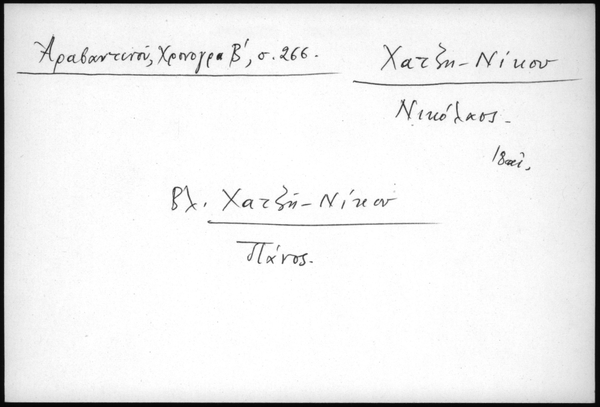 Ἀραβαντινοῦ, Χρονογρα Β΄, σ. 266.
Χατζῆ-Νίκου
Νικόλαος.
Βλ. Χατζῆ-Νίκου
Πάνος.